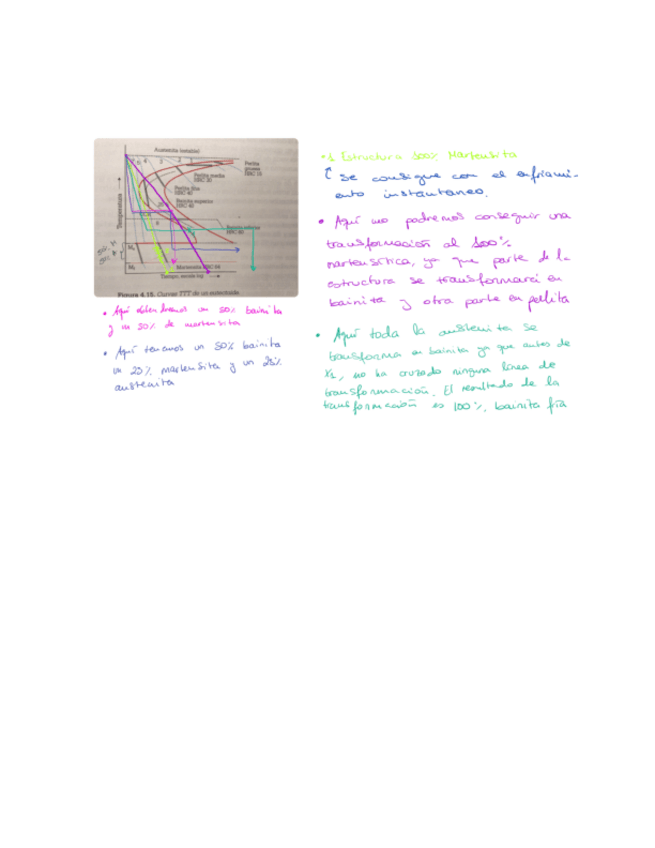 Austenita (estable)
Perlita
gruesa
HRC 15
Perlita media
HRC 30
Perlita fina
HRC 40
Bainita superior
HRC 40
Bainita inferior
HRC 60
Temperatura
Ms
Mf
Martensita HRC 64
Tiempo, escala log
Figura 4.15. Curvas TTT de un eutectoide.
• Aquí obtendremos un 50% bainita
y un 50% de martensita
• Aquí tenemos un 50% bainita
un 25% martensita y un 25%
austenita
•1 Estructura 100% Martensita
se consigue con el enfriami-
ento instantaneo.
• Aquí no podremos conseguir una
transformación al 100%
martensítica, ya que parte de la
estructura se transformará en
bainita y otra parte en pellita
• Aquí toda la austenita se
transforma en bainita ya que antes de
X1, no ha cruzado ninguna línea de
transformación. El resultado de la
transformación es 100% bainita fría